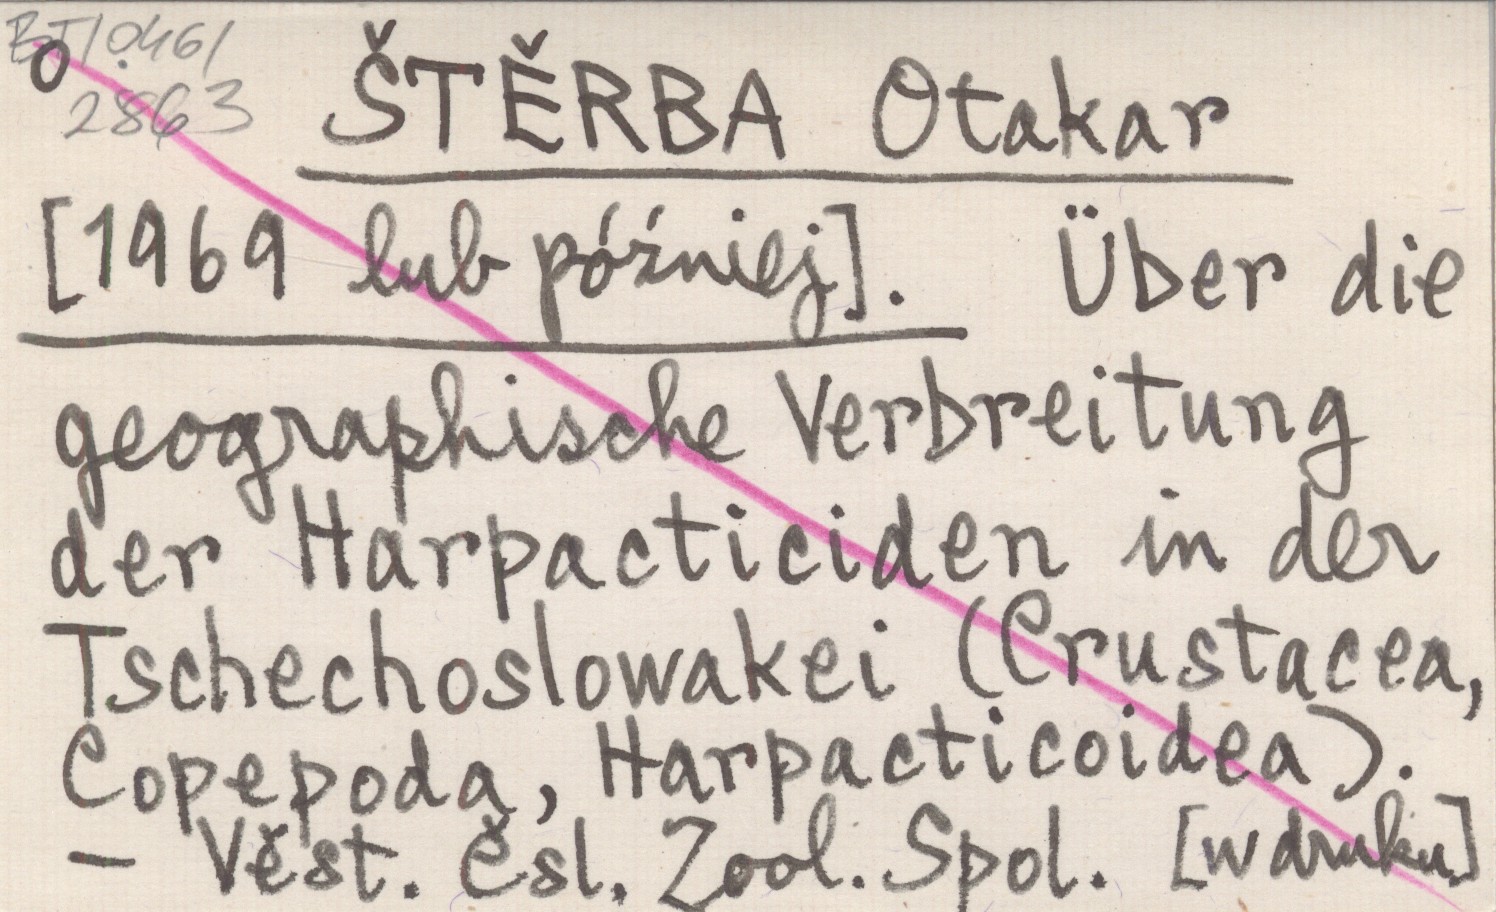 BT/046/
2863
o
ŠTĚRBA Otakar
[1969 lub później]. Über die
geographische Verbreitung
der Harpacticiden in der
Tschechoslowakei (Crustacea,
Copepoda, Harpacticoidea).
– Věst. čsl. Zool. Spol. [w druku]